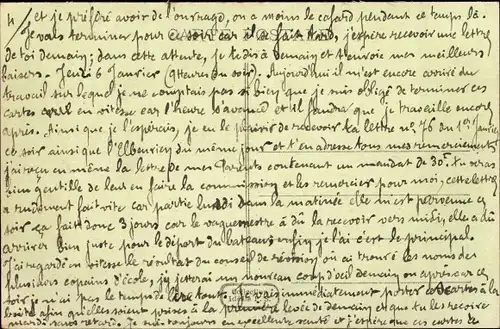 4 et je préfère avoir de l'ouvrage, on a moins le cafard pendant ce temps là.
Je vais terminer pour ce soir car il se fait tard, j'espère recevoir une lettre
de toi demain; dans cette attente, je te dis à demain et t'envoie mes meilleurs
baisers. – Jeudi 6 Janvier ( heures du soir). Aujourd'hui il m'est encore arrivé du
travail sur lequel je ne comptais pas si bien que je suis obligé de terminer ces
cartes en vitesse car l'heure s'avance et il faudra que je travaille encore
après. Ainsi que je l'espérais, j'ai eu le plaisir de recevoir ta lettre n° 76 du 1er Janvier
ce soir ainsi que l'Elbeuvien du même jour et t'en adresse tous mes remerciements,
j'ai reçu en même la lettre de mes Parents contenant un mandat de 30f. Tu seras
bien gentille de leur en faire la commission et les remercier pour moi, cette lettre
a rudement fait vite car partie lundi dans la matinée elle m'est parvenue ce
soir ça fait donc 3 jours car le vaguemestre a dû la recevoir vers midi, elle a dû
arriver bien juste pour le départ du bateau enfin je l'ai c'est le principal.
J'ai regardé en vitesse le résultat du conseil de révision où ai trouvé les noms de
plusiers copains d'école, j'y jetterai un nouveau coup d'oeil demain ou après car ce
soir je n'ai pas le temps de lire tout. Je vais immédiatement porter ces cartes à la
boîte afin qu'elles soient prises à la première levée de demain et que tu les reçoives
sans retard. Je suis toujours en excellente santé et j'espère que ces cartes